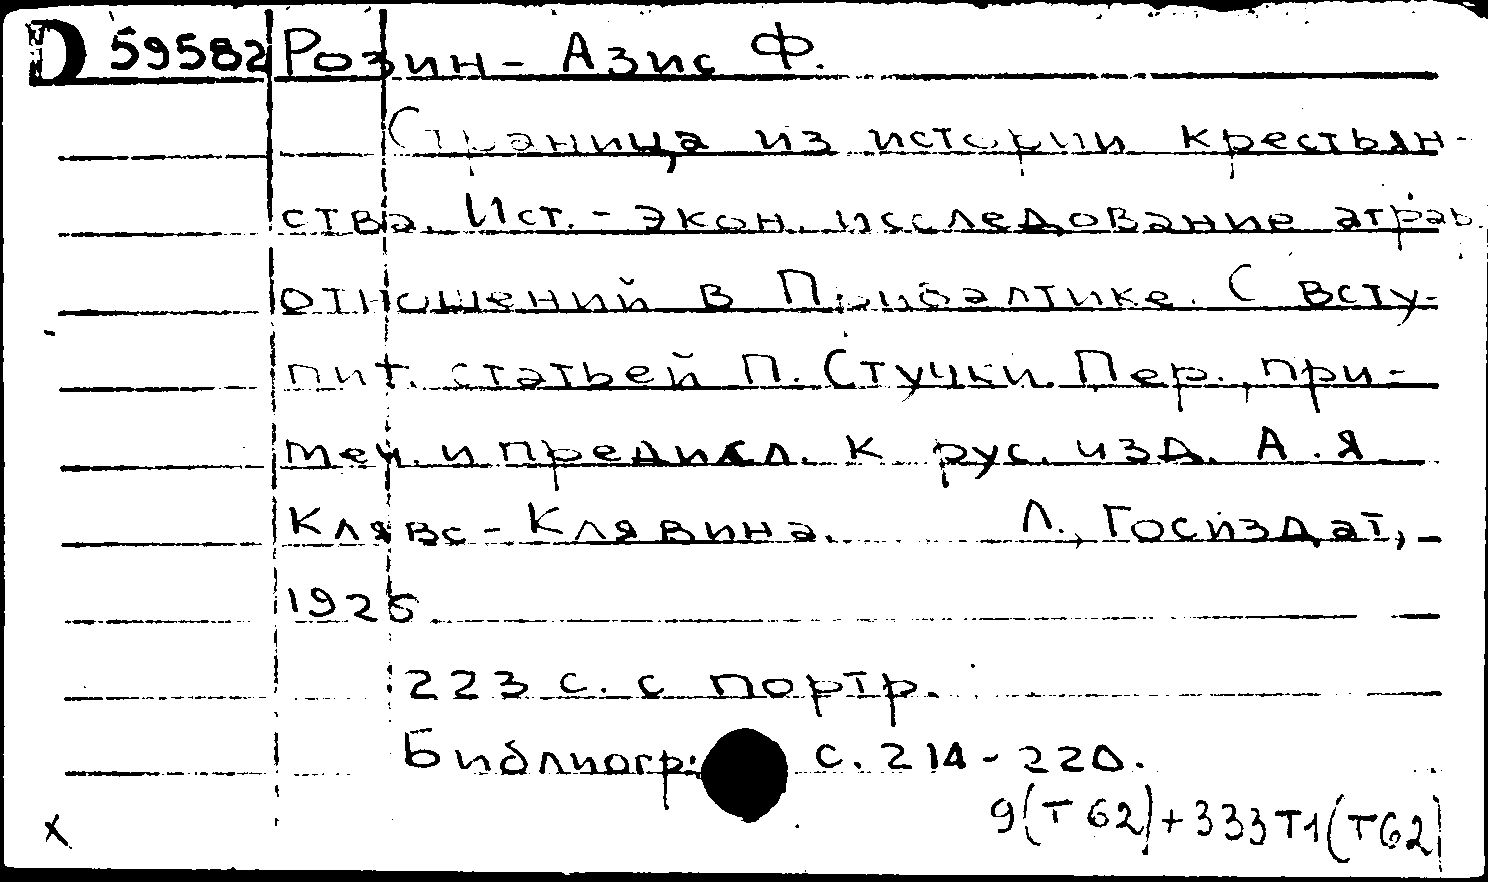 D 59582 Розин-Азис Ф.
Страница из истории крестьян-
ства. Ист.-экон. исследование аграр.
отношений в Прибалтике. С всту-
пит. статьей П. Стучки. Пер., при-
меч. и предисл. к рус. изд. А.Я
Клявс-Клявина. Л., Госиздат,
1925
223 с. с портр.
Библиогр: с. 214-220.
9(Т62)+333Т1(Т62)
x